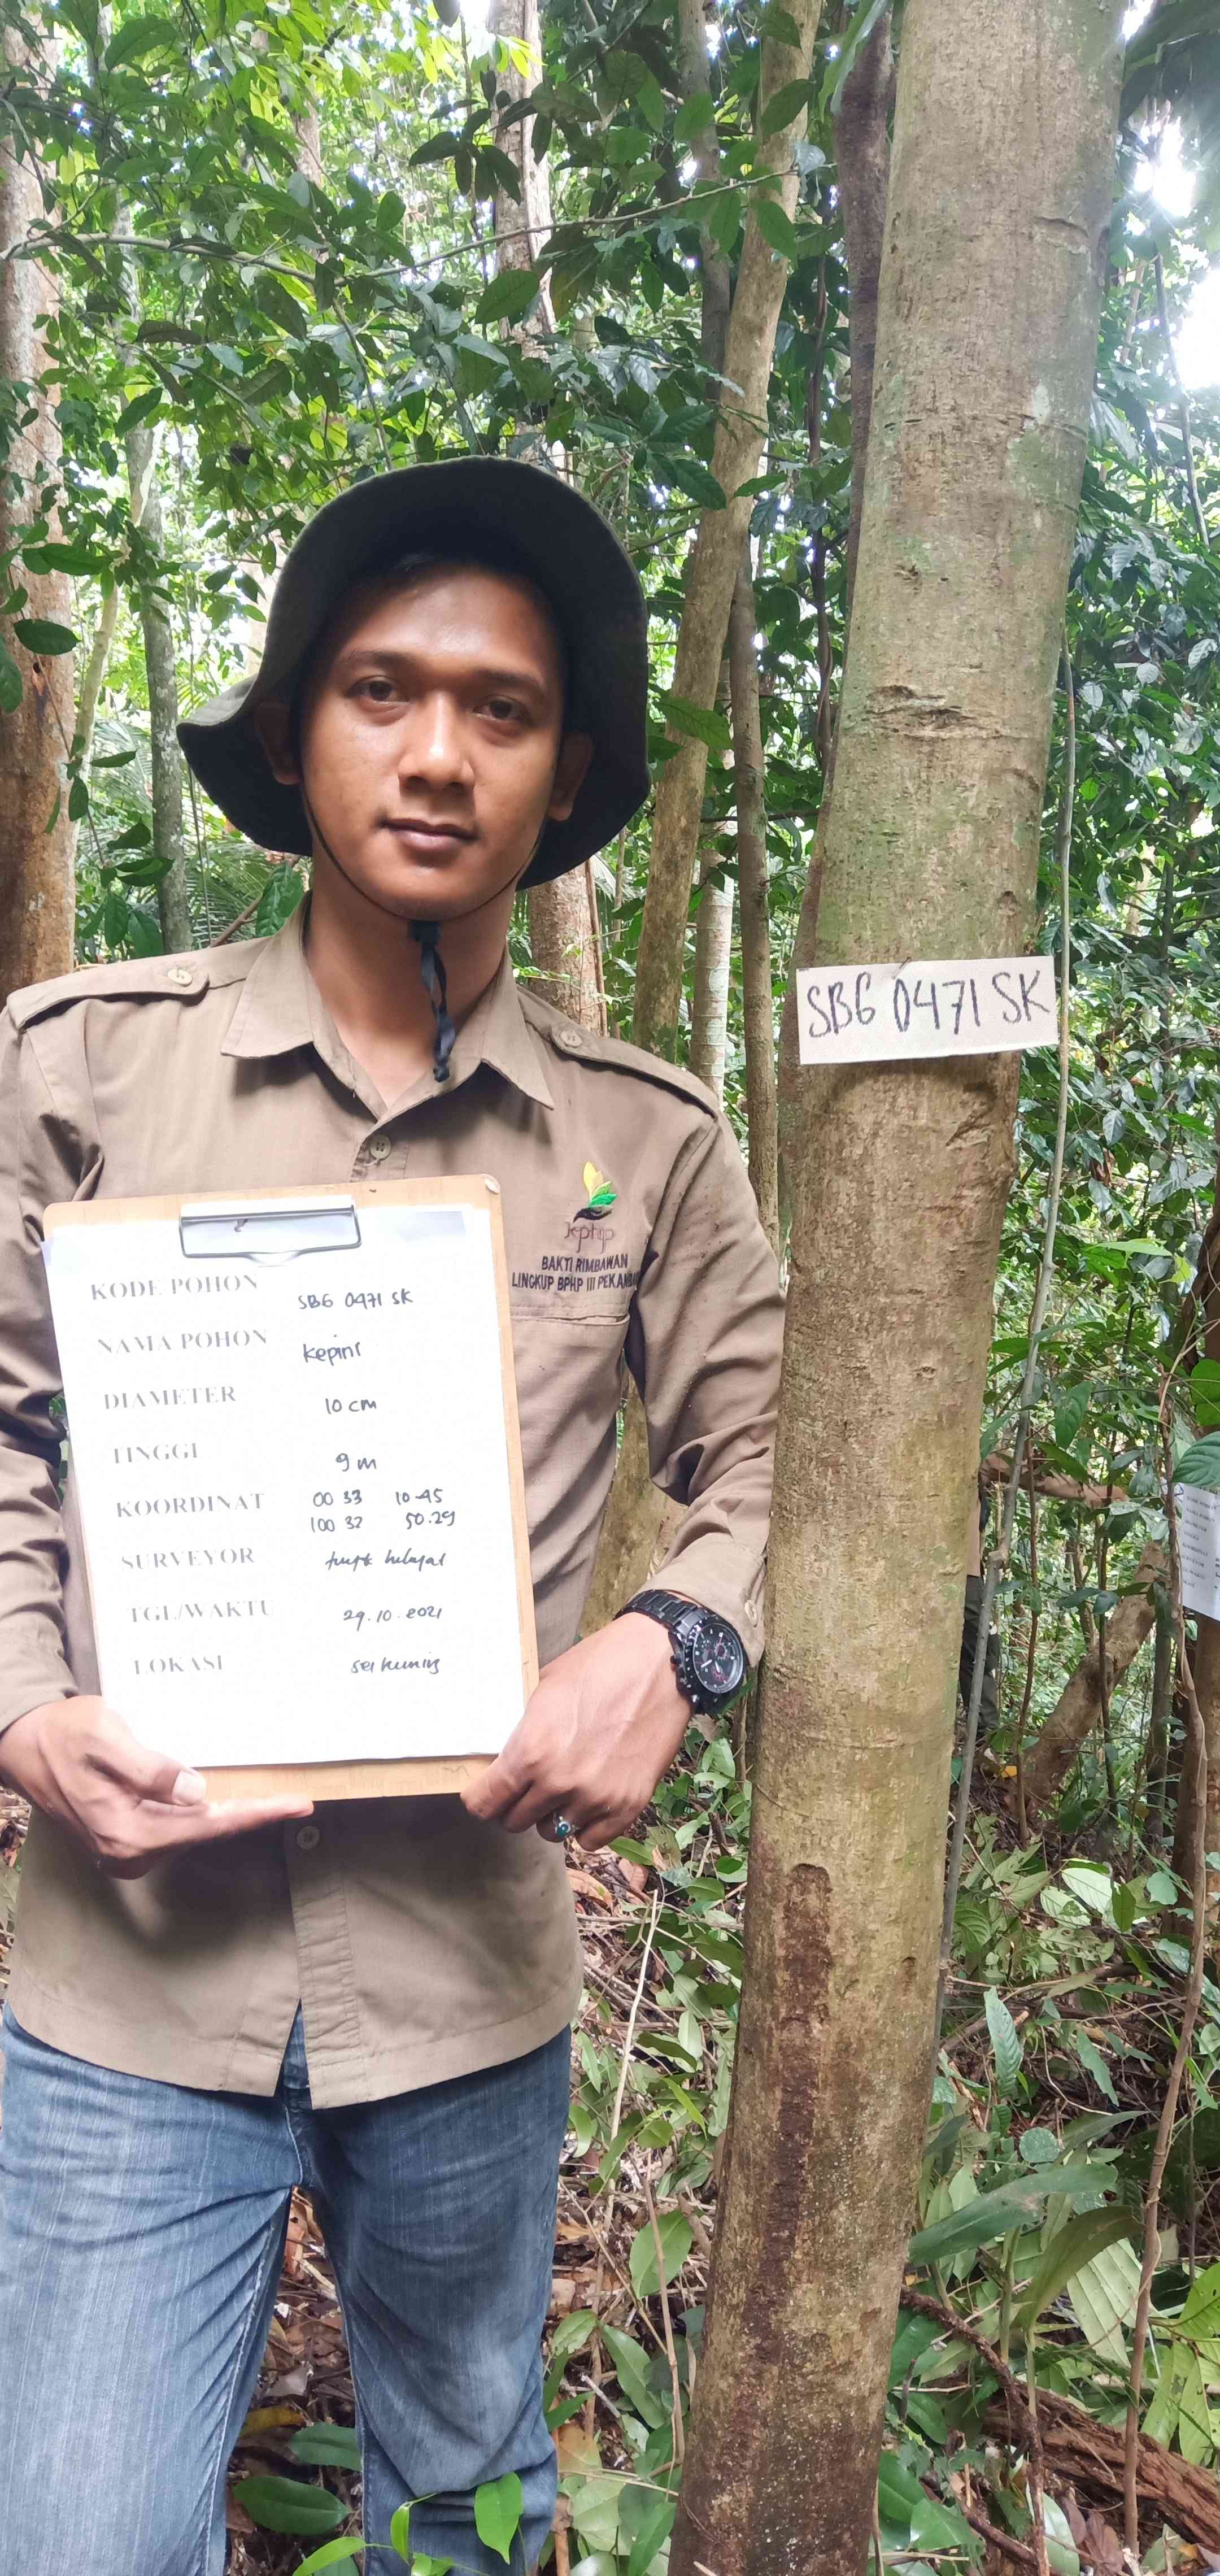 SBG 0471 SK
kphp
BAKTI RIMBAWAN
LINGKUP BPHP III PEKANBA
KODE POHON SBG 0471 SK
NAMA POHON kepini
DIAMETER 10 cm
TINGGI 9 m
KOORDINAT 00 33 10.45
100 32 50.29
SURVEYOR
TGL/WAKTU 29.10.2021
LOKASI sei kuning